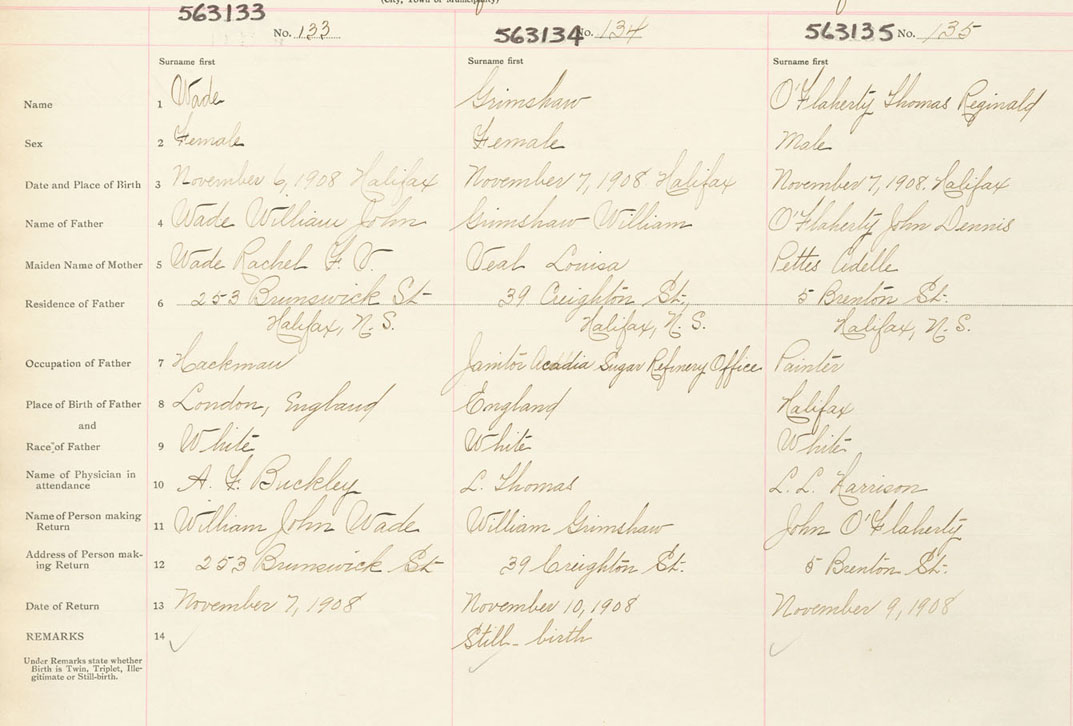 (City, Town or Municipality)
563133 563134 563135
No. 133 No. 134 No. 135
Surname first Surname first Surname first
Name 1 Wade Grimshaw O'Flaherty Thomas Reginald
Sex 2 Female Female Male
Date and Place of Birth 3 November 6, 1908 Halifax November 7, 1908 Halifax November 7, 1908. Halifax
Name of Father 4 Wade William John Grimshaw William O'Flaherty John Dennis
Maiden Name of Mother 5 Wade Rachel F. V. Veal Louisa Pettes Adelle
Residence of Father 6 253 Brunswick St 39 Creighton St., 5 Brenton St.
Halifax, N.S. Halifax, N.S. Halifax, N.S.
Occupation of Father 7 Hackman Janitor Acadia Sugar Refinery Office Painter
Place of Birth of Father 8 London, England England Halifax
and
Race of Father 9 White White White
Name of Physician in
attendance 10 A. F. Buckley L. Thomas L. L. Harrison
Name of Person making
Return 11 William John Wade William Grimshaw John O'Flaherty
Address of Person mak-
ing Return 12 253 Brunswick St 39 Creighton St. 5 Brenton St.
Date of Return 13 November 7, 1908 November 10, 1908 November 9, 1908
REMARKS 14 Still-birth
Under Remarks state whether
Birth is Twin, Triplet, Ille-
gitimate or Still-birth.